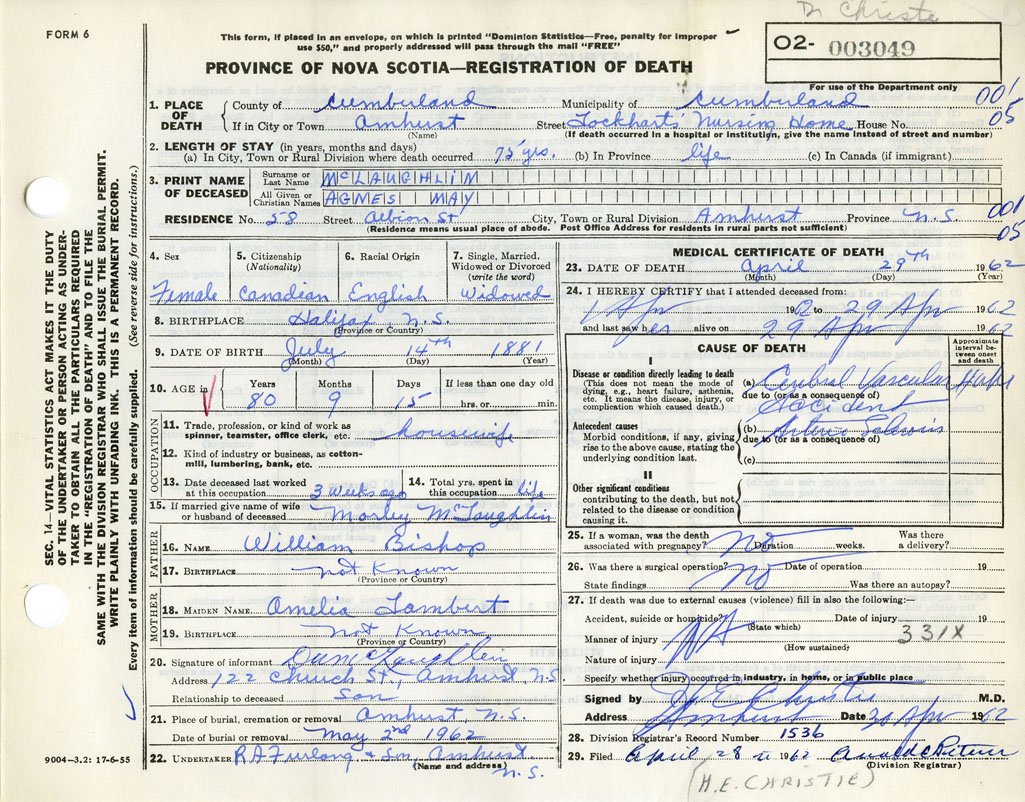 Dr Christie
FORM 6
This form, if placed in an envelope, on which is printed "Dominion Statistics—Free, penalty for improper
use $50," and properly addressed will pass through the mail "FREE"
O2- 003049
PROVINCE OF NOVA SCOTIA—REGISTRATION OF DEATH
For use of the Department only
1. PLACE OF DEATH County of Cumberland Municipality of Cumberland 001
If in City or Town Amhurst Street Lockhart's Nursing Home House No. 05
(Name) (If death occurred in a hospital or institution, give the name instead of street and number)
2. LENGTH OF STAY (in years, months and days)
(a) In City, Town or Rural Division where death occurred 75 yrs. (b) In Province life (c) In Canada (if immigrant)
3. PRINT NAME OF DECEASED Surname or Last Name McLAUGHLIN
All Given or Christian Names AGNES MAY
RESIDENCE No. 58 Street Albion St City, Town or Rural Division Amhurst Province N.S. 001
(Residence means usual place of abode. Post Office Address for residents in rural parts not sufficient) 05
4. Sex Female
5. Citizenship (Nationality) Canadian
6. Racial Origin English
7. Single, Married, Widowed or Divorced (write the word) Widowed
8. BIRTHPLACE Halifax, N.S.
(Province or Country)
9. DATE OF BIRTH July 14th 1881
(Month) (Day) (Year)
10. AGE in Years 80 Months 9 Days 15 If less than one day old hrs. or min.
OCCUPATION
11. Trade, profession, or kind of work as spinner, teamster, office clerk, etc. housewife
12. Kind of industry or business, as cotton-mill, lumbering, bank, etc.
13. Date deceased last worked at this occupation 3 weeks ago
14. Total yrs. spent in this occupation life
15. If married give name of wife or husband of deceased Morley McLaughlin
FATHER
16. NAME William Bishop
17. BIRTHPLACE not Known
(Province or Country)
MOTHER
18. MAIDEN NAME Amelia Lambert
19. BIRTHPLACE Not Known
(Province or Country)
20. Signature of informant McLaughlin
Address 122 Church St., Amhurst, N.S
Relationship to deceased Son
21. Place of burial, cremation or removal Amhurst, N.S.
Date of burial or removal May 2nd 1962
22. UNDERTAKER R A Furlong & Son, Amhurst
(Name and address) N.S.
MEDICAL CERTIFICATE OF DEATH
23. DATE OF DEATH April 29th 1962
(Month) (Day) (Year)
24. I HEREBY CERTIFY that I attended deceased from:
1 Apr 1962 to 29 Apr 1962
and last saw her alive on 29 Apr 1962
CAUSE OF DEATH
Approximate interval between onset and death
I
Disease or condition directly leading to death
(This does not mean the mode of dying, e.g., heart failure, asthenia, etc. It means the disease, injury, or complication which caused death.)
(a) Cerebral Vascular
due to (or as a consequence of)
Accident
Antecedent causes
Morbid conditions, if any, giving rise to the above cause, stating the underlying condition last.
(b) Arterio Sclerosis
due to (or as a consequence of)
(c)
II
Other significant conditions
contributing to the death, but not related to the disease or condition causing it.
25. If a woman, was the death associated with pregnancy? No Duration weeks. Was there a delivery?
26. Was there a surgical operation? No Date of operation 19
State findings Was there an autopsy?
27. If death was due to external causes (violence) fill in also the following:—
Accident, suicide or homicide? Date of injury 19
(State which) 331X
Manner of injury NA
(How sustained)
Nature of injury
Specify whether injury occurred in industry, in home, or in public place
Signed by H E Christie M.D.
Address Amhurst Date 30 Apr 1962
28. Division Registrar's Record Number 1536
29. Filed April 28 1962
(Division Registrar)
(H.E. CHRISTIE)
SEC. 14—VITAL STATISTICS ACT MAKES IT THE DUTY
OF THE UNDERTAKER OR PERSON ACTING AS UNDER-
TAKER TO OBTAIN ALL THE PARTICULARS REQUIRED
IN THE "REGISTRATION OF DEATH" AND TO FILE THE
SAME WITH THE DIVISION REGISTRAR WHO SHALL ISSUE THE BURIAL PERMIT.
WRITE PLAINLY WITH UNFADING INK. THIS IS A PERMANENT RECORD.
Every item of information should be carefully supplied. (See reverse side for instructions.)
9004—3.2: 17-6-55